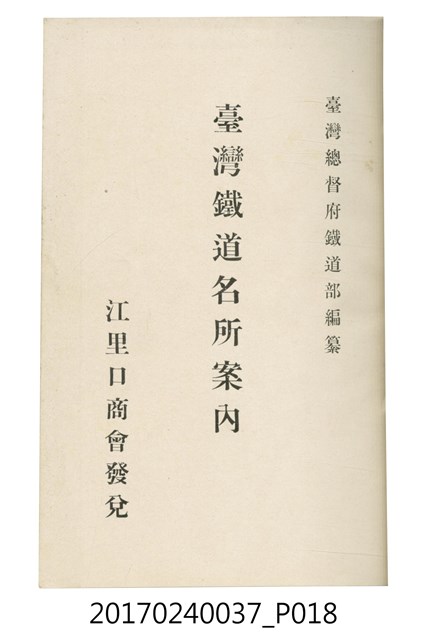 臺灣總督府鐵道部編纂
臺灣鐵道名所案內
江里口商會發兌
20170240037_P018